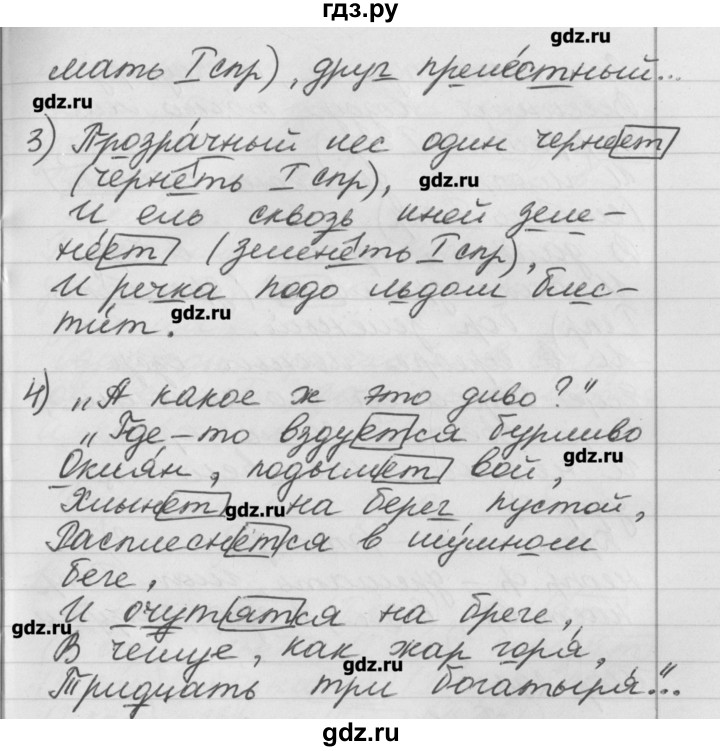 гдз.ру
gdz.ru
мать I спр), друг прелестный...
gdz.ru
3) Прозрачный лес один чернеет
(чернеть I спр), gdz.ru
И ель сквозь иней зеле-
неет (зеленеть I спр),
И речка подо льдом блес-
тит. gdz.ru
4) „А какое ж это диво?"
„Где-то вздуется бурливо
gdz.ru
Окиян, подымет вой,
Хлынет gdz.ru на берег пустой,
Расплеснётся в шумном
беге,
И очутятся на бреге,
gdz.ru
В чешуе, как жар горя,
gdz.ru
Тридцать три богатыря..."
gdz.ru